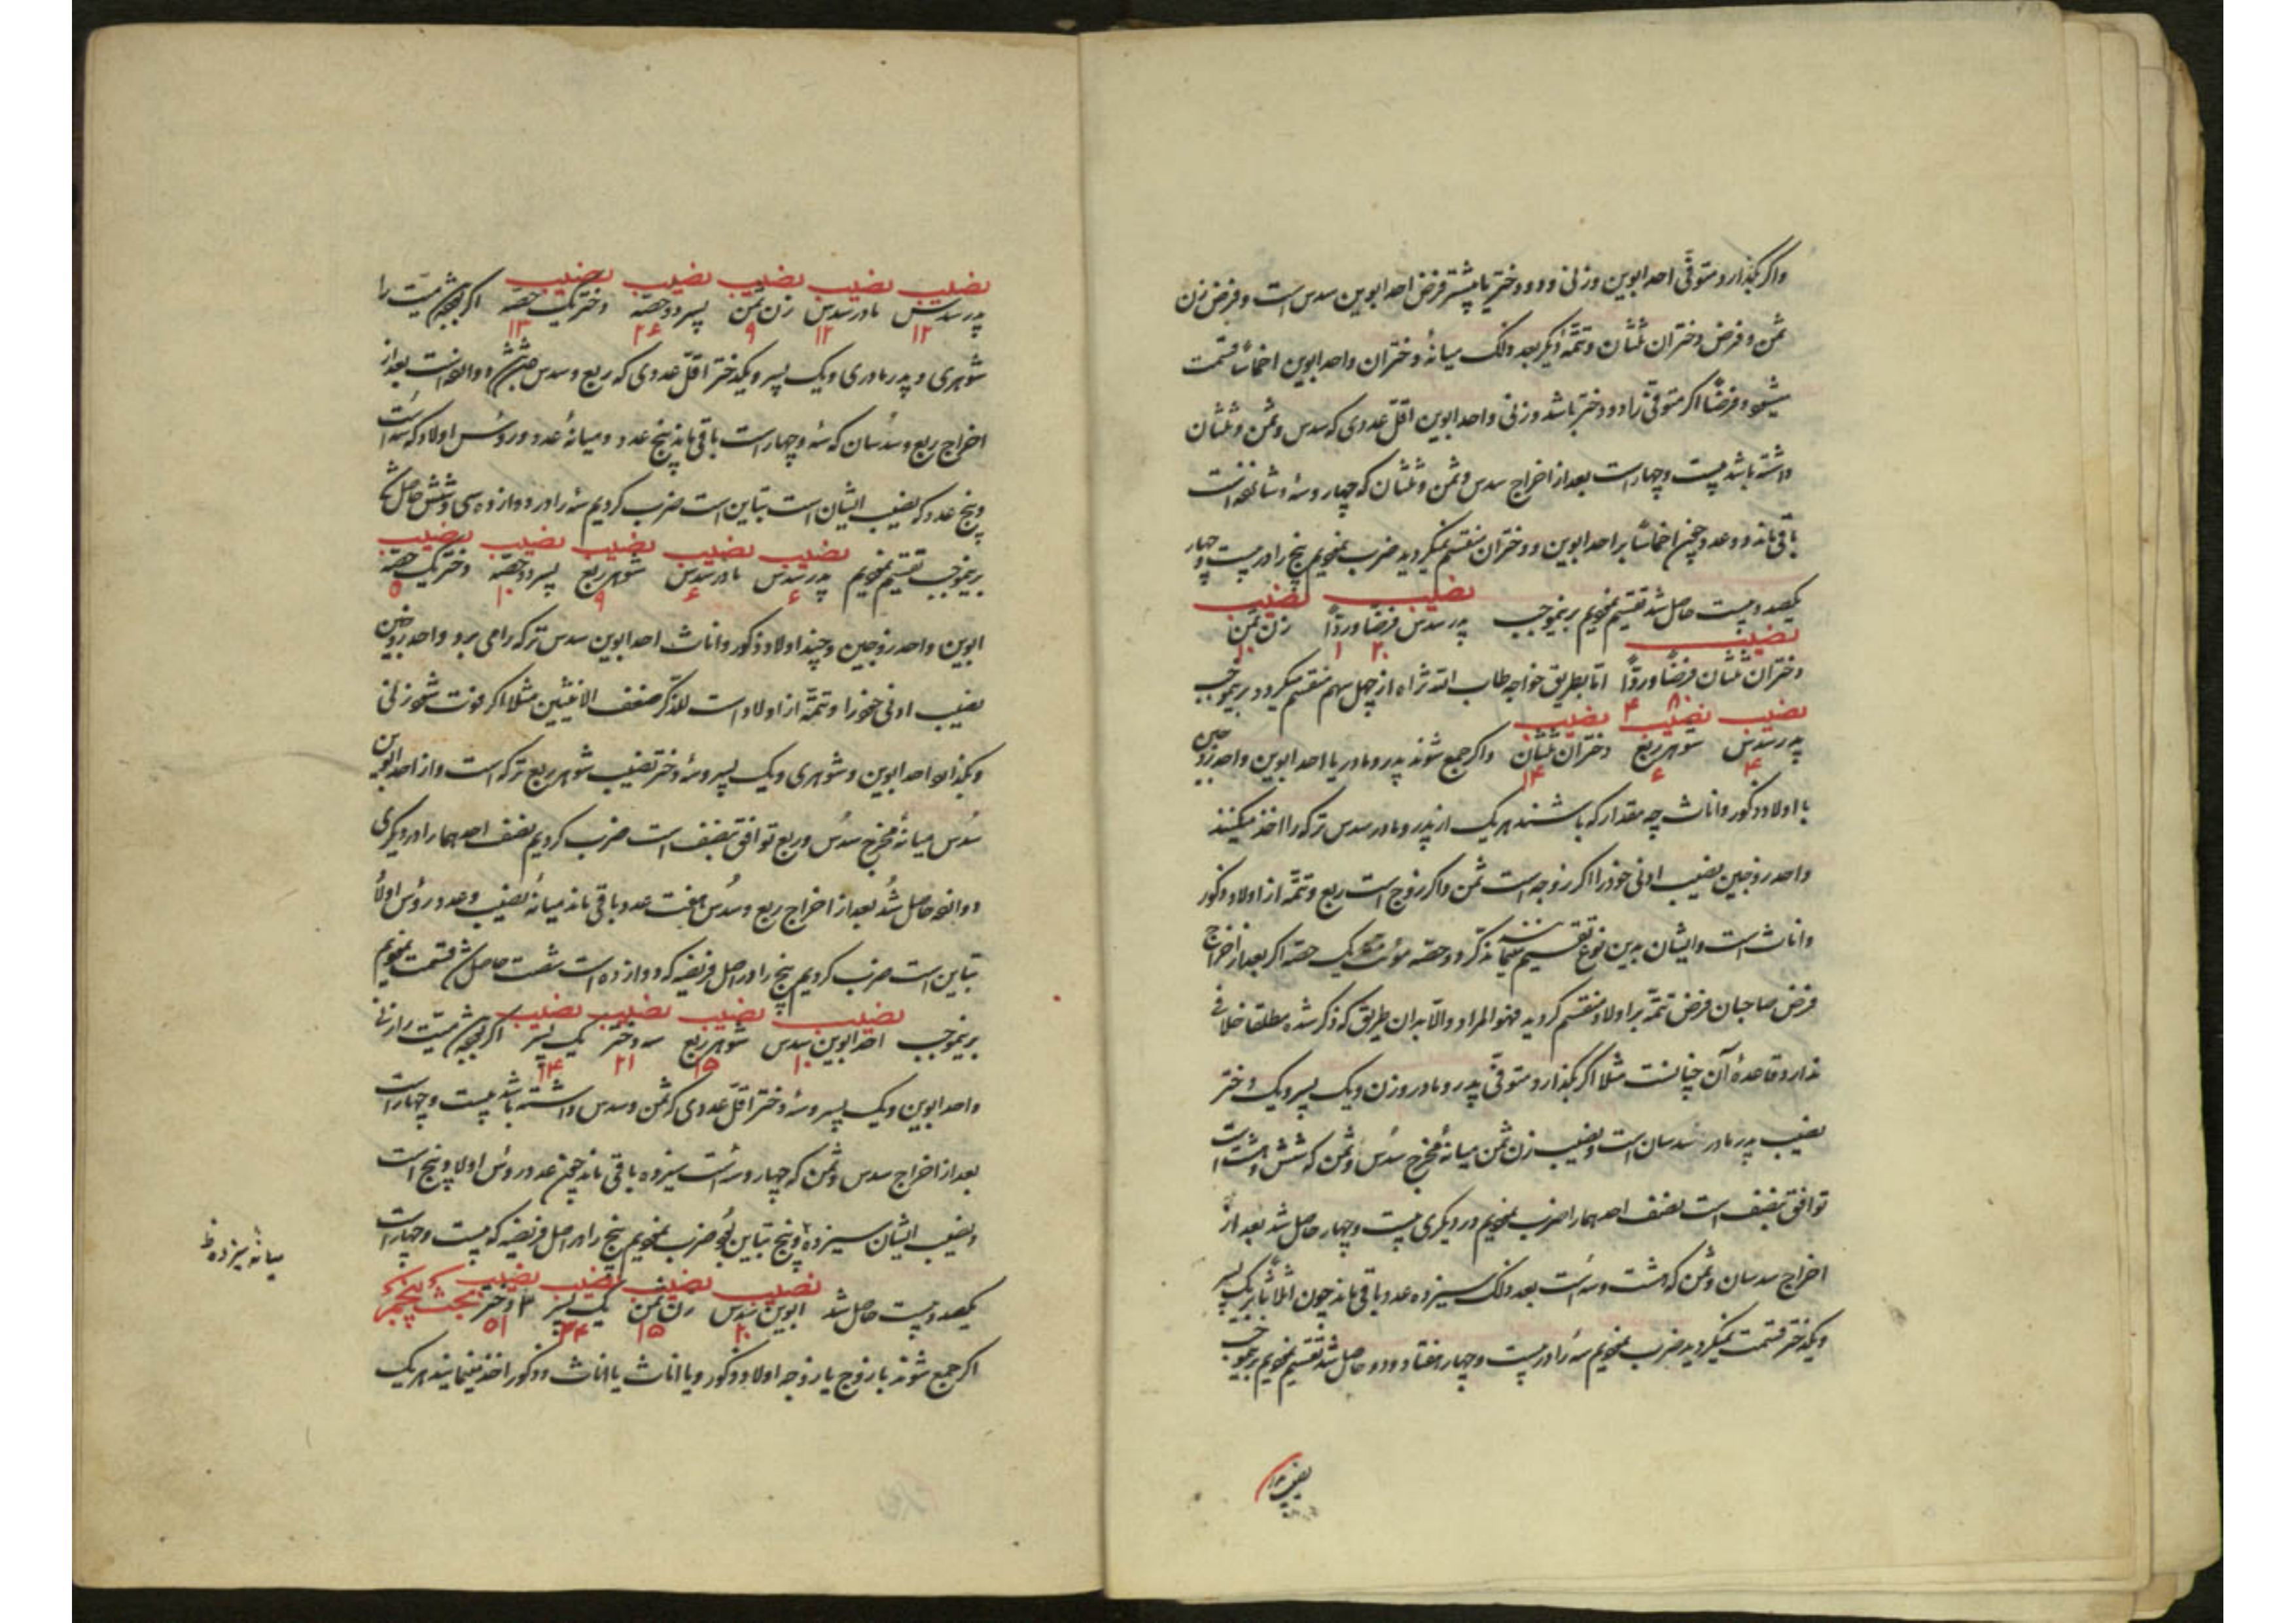 واگر بگذارد متوفّی احد ابوین و زنی و دو دختر یا بیشتر فرض احد ابوین سدس است و فرض زن
ثمن و فرض دختران ثلثان و تتمّه دیگر بعد ذلک میانهٔ دختران و احد ابوین اخماسًا قسمت
میشود و فرضًا اگر متوفّی را دو دختر باشد و زنی و احد ابوین اقلّ عددی که سدس و ثمن و ثلثان
داشته باشد بیست و چهار است بعد از اخراج سدس و ثمن و ثلثان که چهار و سه و شانزده است
باقی ماند دو عدد چون اخماسًا بر احد ابوین و دختران منقسم نمیگردید ضرب نمودیم پنج را در بیست و چهار
یکصد و بیست حاصل شد تقسیم نمودیم برینموجب نصیب پدر سدس فرضًا و ردًّا ۲۰ ۴ نصیب زن ثمن
نصیب دختران ثلثان فرضًا و ردًّا ۸۰ امّا بطریق خواجه طاب الله ثراه از چهل سهم منقسم میگردد برینموجب
نصیب پدر سدس ۴ نصیب شوهر ربع ۶ نصیب دختران ثلثان ۱۴ واگر جمع شوند پدر و مادر یا احد ابوین و احد زوجین
با اولاد ذکور و اناث چه مقدار که باشند هر یک از پدر و مادر سدس ترکه را اخذ میکنند
واحد زوجین نصیب ادنی خود را اگر زوجه است ثمن و اگر زوج است ربع و تتمّه از اولاد ذکور
و اناث است و ایشان بدین نوع تقسیم مینمایند مذکر دو حصه مؤنث یک حصّه اگر بعد از اخراج
فرض صاحبان فرض تتمّه بر اولاد منقسم گردید فهو المراد و الّا بدان طریق که ذکر شده مطلقا خلافی
ندارد و قاعدهٔ آن چنانست مثلا اگر بگذارد متوفّی پدر و مادر و زن و یک پسر و یک دختر
نصیب پدر و مادر سدسان است و نصیب زن ثمن میانهٔ مخرج سدس و ثمن که شش و هشت است
توافق بنصف است نصف احدهما را ضرب نمودیم در دیگری بیست و چهار حاصل شد بعد از
اخراج سدسان و ثمن که هشت و سه است بعد ذلک سیزده عدد باقی ماند چون اثلاثًا بر یک پسر
و یکدختر قسمت نمیگردید ضرب نمودیم سه را در بیست و چهار هفتاد و دو حاصل شد تقسیم نمودیم برینموجب
نصیب پدر سدس ۱۲ نصیب مادر سدس ۱۲ نصیب زن ثمن ۹ نصیب پسر دو حصّه ۲۶ نصیب دختر یک حصّه ۱۳ اگر بوده باشد میّت را
شوهری و پدر و مادری و یک پسر و یکدختر اقلّ عددی که ربع و سدس داشته باشد دوازده است بعد از
اخراج ربع و سدسان که سه و چهار است باقی ماند پنج عدد و میانهٔ عدد و رؤس اولاد که سه است
و پنج عدد که نصیب ایشان است تباین است ضرب کردیم سه را در دوازده سی و شش حاصل شد
برینموجب تقسیم نمودیم نصیب پدر سدس ۶ نصیب مادر سدس ۶ نصیب شوهر ربع ۹ نصیب پسر دو حصّه ۱۰ نصیب دختر یک حصّه ۵
ابوین و احد زوجین و چند اولاد ذکور و اناث احد ابوین سدس ترکه را می برد و احد زوجین
نصیب ادنی خود را و تتمّه از اولاد است للذکر ضعف الانثیین مثلا اگر فوت شود زنی
و بگذارد احد ابوین و شوهری و یک پسر و سه دختر نصیب شوهر ربع ترکه است و از احد ابوین
سدس میانهٔ مخرج سدس و ربع توافق بنصف است ضرب کردیم نصف احدهما را در دیگری
دوازده حاصل شد بعد از اخراج ربع و سدس هفت عدد باقی ماند میانهٔ نصیب و عدد رؤس اولاد
تباین است ضرب کردیم پنج را در اصل فریضه که دوازده است شصت حاصل شد قسمت نمودیم
برینموجب نصیب احد ابوین سدس ۱۰ نصیب شوهر ربع ۱۵ نصیب سه دختر ۲۱ نصیب یک پسر ۱۴ اگر بوده باشد میّت را زنی
واحد ابوین و یک پسر و سه دختر اقلّ عددی که ثمن و سدس داشته باشد بیست و چهار است
بعد از اخراج سدس و ثمن که چهار و سه است سیزده باقی ماند چون عدد رؤس اولاد پنج است
و نصیب ایشان سیزده و پنج تباین بود ضرب نمودیم پنج را در اصل فریضه که بیست و چهار است
یکصد و بیست حاصل شد نصیب ابوین سدس ۲۰ نصیب زن ثمن ۱۵ نصیب یک پسر ۳۴ نصیب ۳ دختر ۵۱ بحث پنجم
اگر جمع شوند با زوج یا زوجه اولاد ذکور و یا اناث یا اناث و ذکور اخذ مینمایند هر یک
میانه سیزده ظ
نصیب